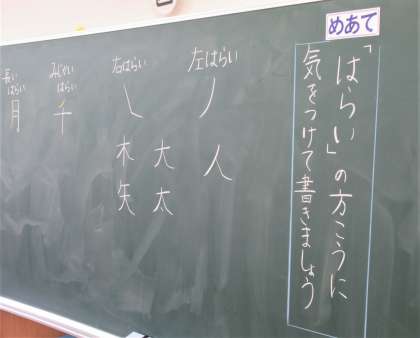 めあて
「はらい」の方こうに
気をつけて書きましょう
左はらい
ノ
人
右はらい
㇏
大
太
木
矢
みじかい
はらい
千
長い
はらい
月